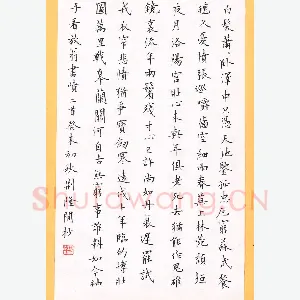 白髮蕭蕭卧澤中只憑天地鑒孤忠厄窮蘇武餐
氈久憂憤張巡嚼齒空細雨春蕪上林苑頹垣
夜月洛陽宮壯心未與年俱老死去猶能作鬼雄
鏡裏流年兩鬢殘寸心自許尚如丹衰遲罷試
戎衣窄悲憤猶爭寶劍寒遠戍十年臨的博壯
圖萬里戰皋蘭關河自古無窮事誰料如今袖
手看放翁書憤二首癸未初秋
Shufawang.CN